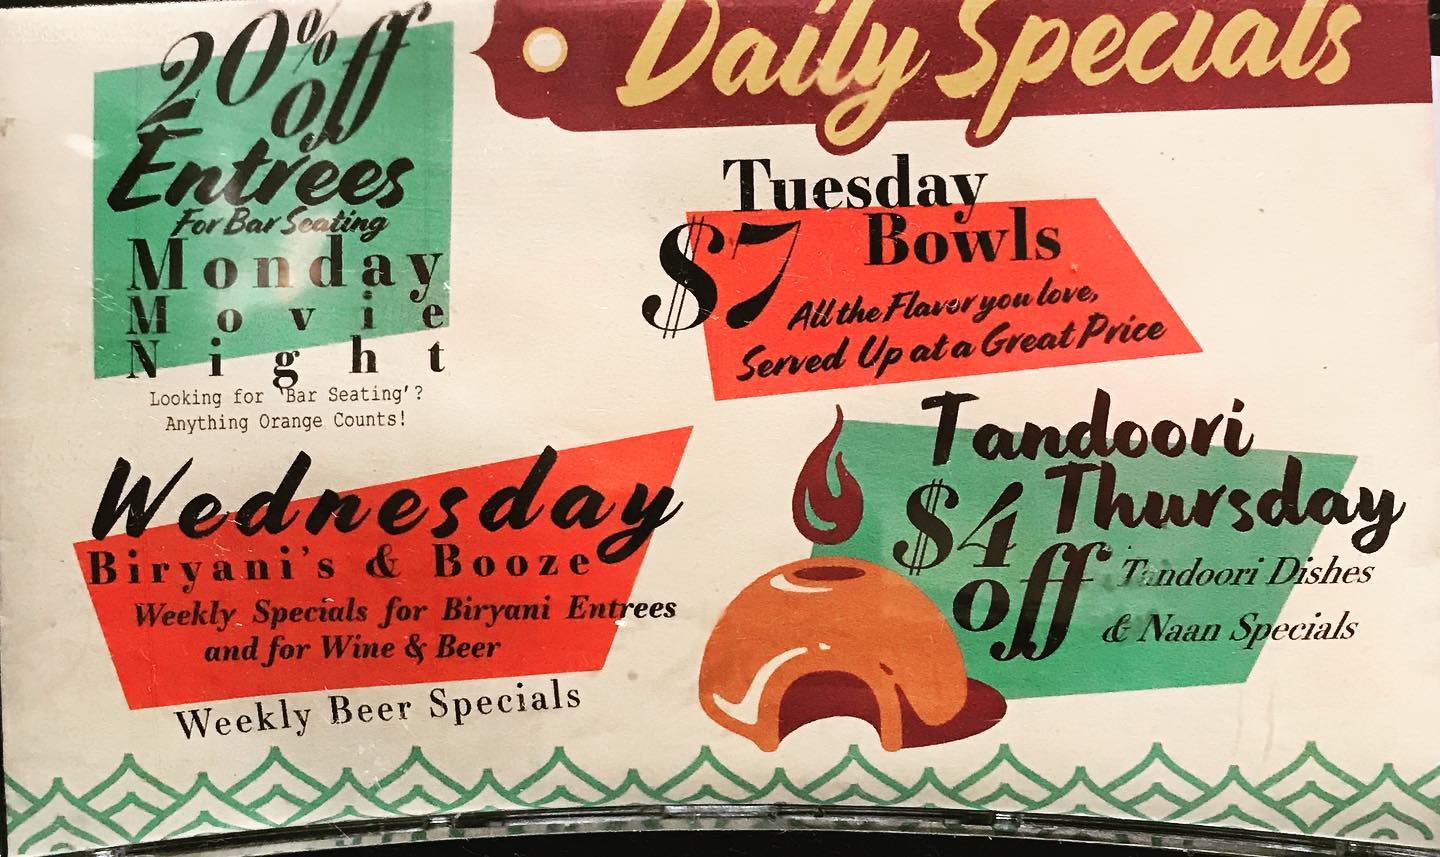 Daily Specials
20% off
Entrees
For Bar Seating
Monday
Movie
Night
Looking for 'Bar Seating'?
Anything Orange Counts!
Tuesday
$7 Bowls
All the Flavor you love,
Served Up at a Great Price
Wednesday
Biryani's & Booze
Weekly Specials for Biryani Entrees
and for Wine & Beer
Weekly Beer Specials
Tandoori
Thursday
$4 off
Tandoori Dishes
& Naan Specials